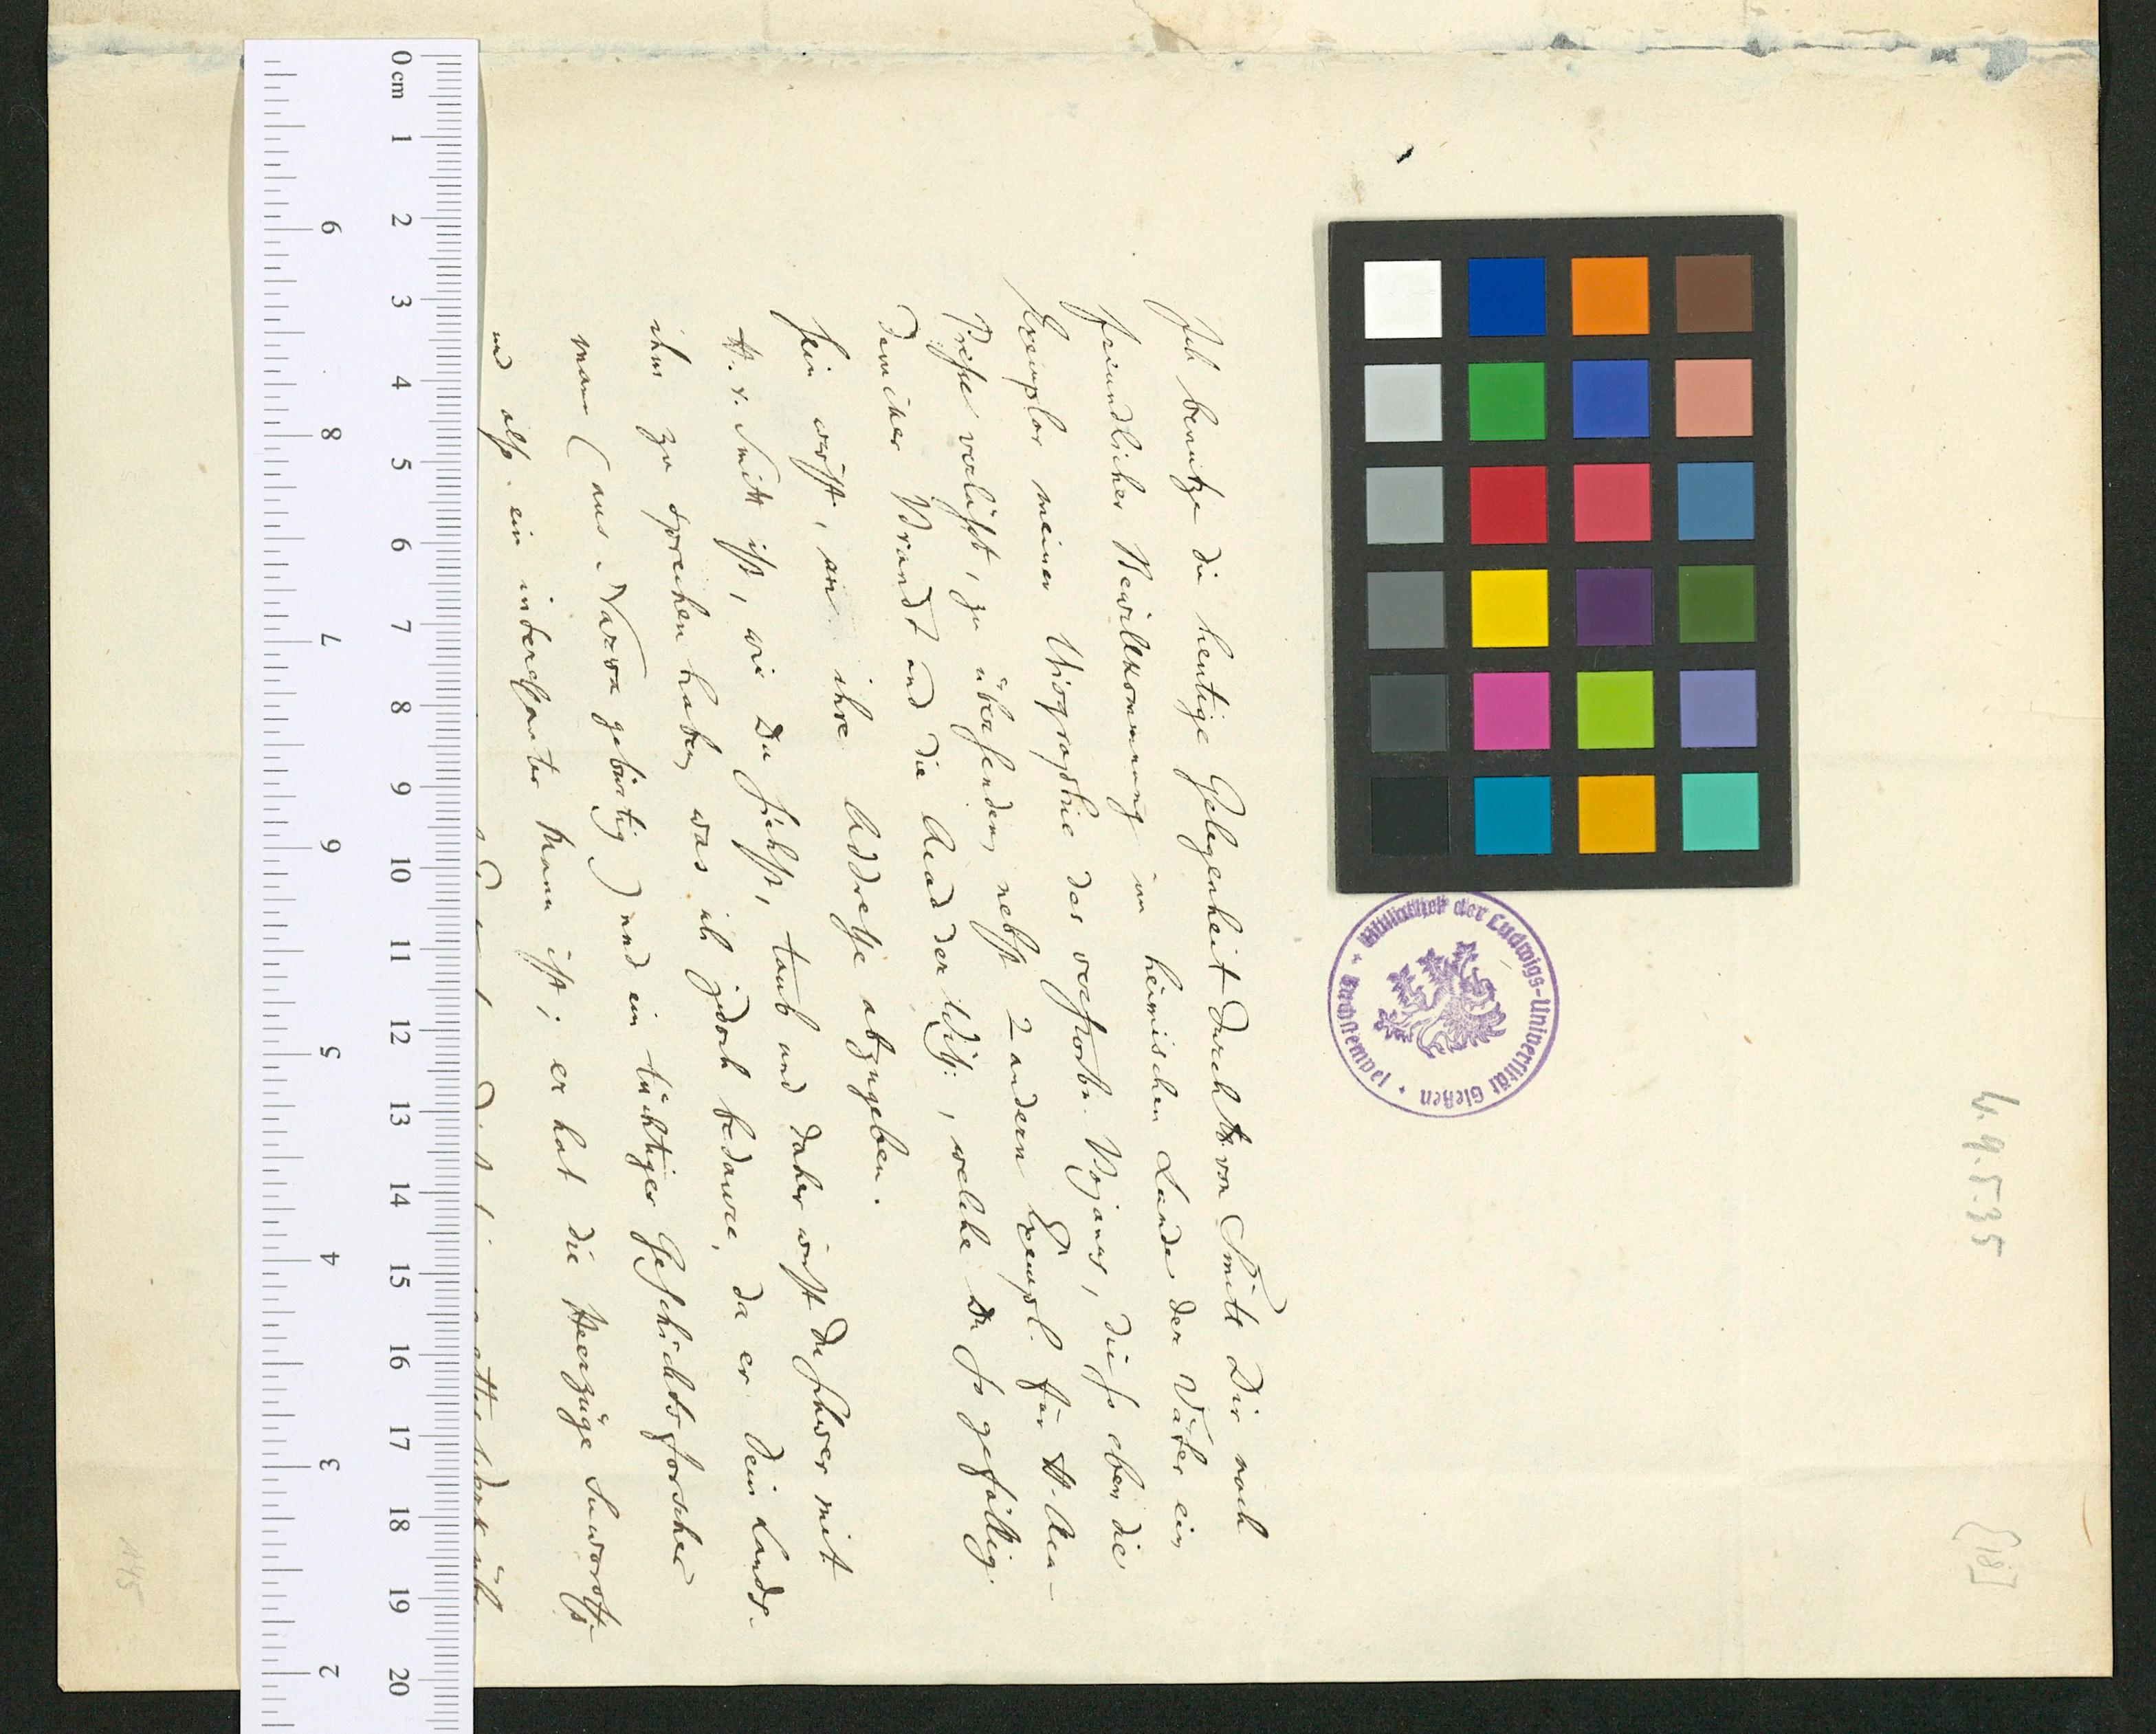 Ich benutze die heutige Gelegenheit durch H. von Smitt Dir nach
freundlicher Bewillkommnung im heimischen Lande der Väter ein
Exemplar meiner Biographie des verstorb. Bojanus, die so eben die
Presse verläßt, zu übersenden, nebst 2 andern Exempl. für H. Aca-
demiker Brandt und die Acad der Wiß:, welche Du so gefällig
sein wirst, an ihre Addresse abzugeben.
H. v. Smitt ist, wie Du siehst, taub und daher wirst Du schwer mit
ihm zu sprechen haben, was ich jedoch bedaure, da er Dein Lands-
mann (aus Narva gebürtig) und ein tüchtiger Geschichtsforscher
und also ein interessanter Mann ist; er hat die Heerzüge Suworoffs
Bibliothek der Ludwigs-Universität Gießen
Buchstempel
W. 9.5.35
[18]
145
0 cm 1 2 3 4 5 6 7 8 9 10 11 12 13 14 15 16 17 18 19 20
9 8 7 6 5 4 3 2